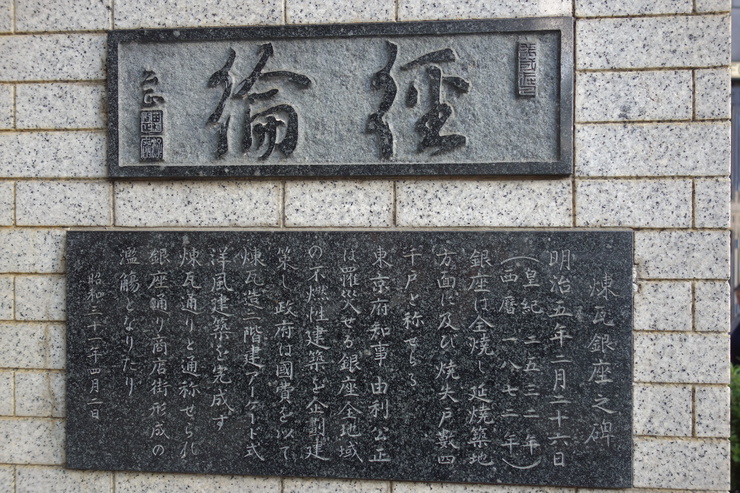 經綸
煉瓦銀座之碑
明治五年二月二十六日
(皇紀二五三二年
西暦一八七二年)
銀座は全焼し延焼築地
方面に及び焼失戸数四
千戸と称せらる
東京府知事由利公正
は罹災せる銀座全地域
の不燃性建築を企劃建
策し政府は國費を以て
煉瓦造二階建アーケード式
洋風建築を完成す
煉瓦通りと通称せられ
銀座通り商店街形成の
濫觴となりたり
昭和三十一年四月二日